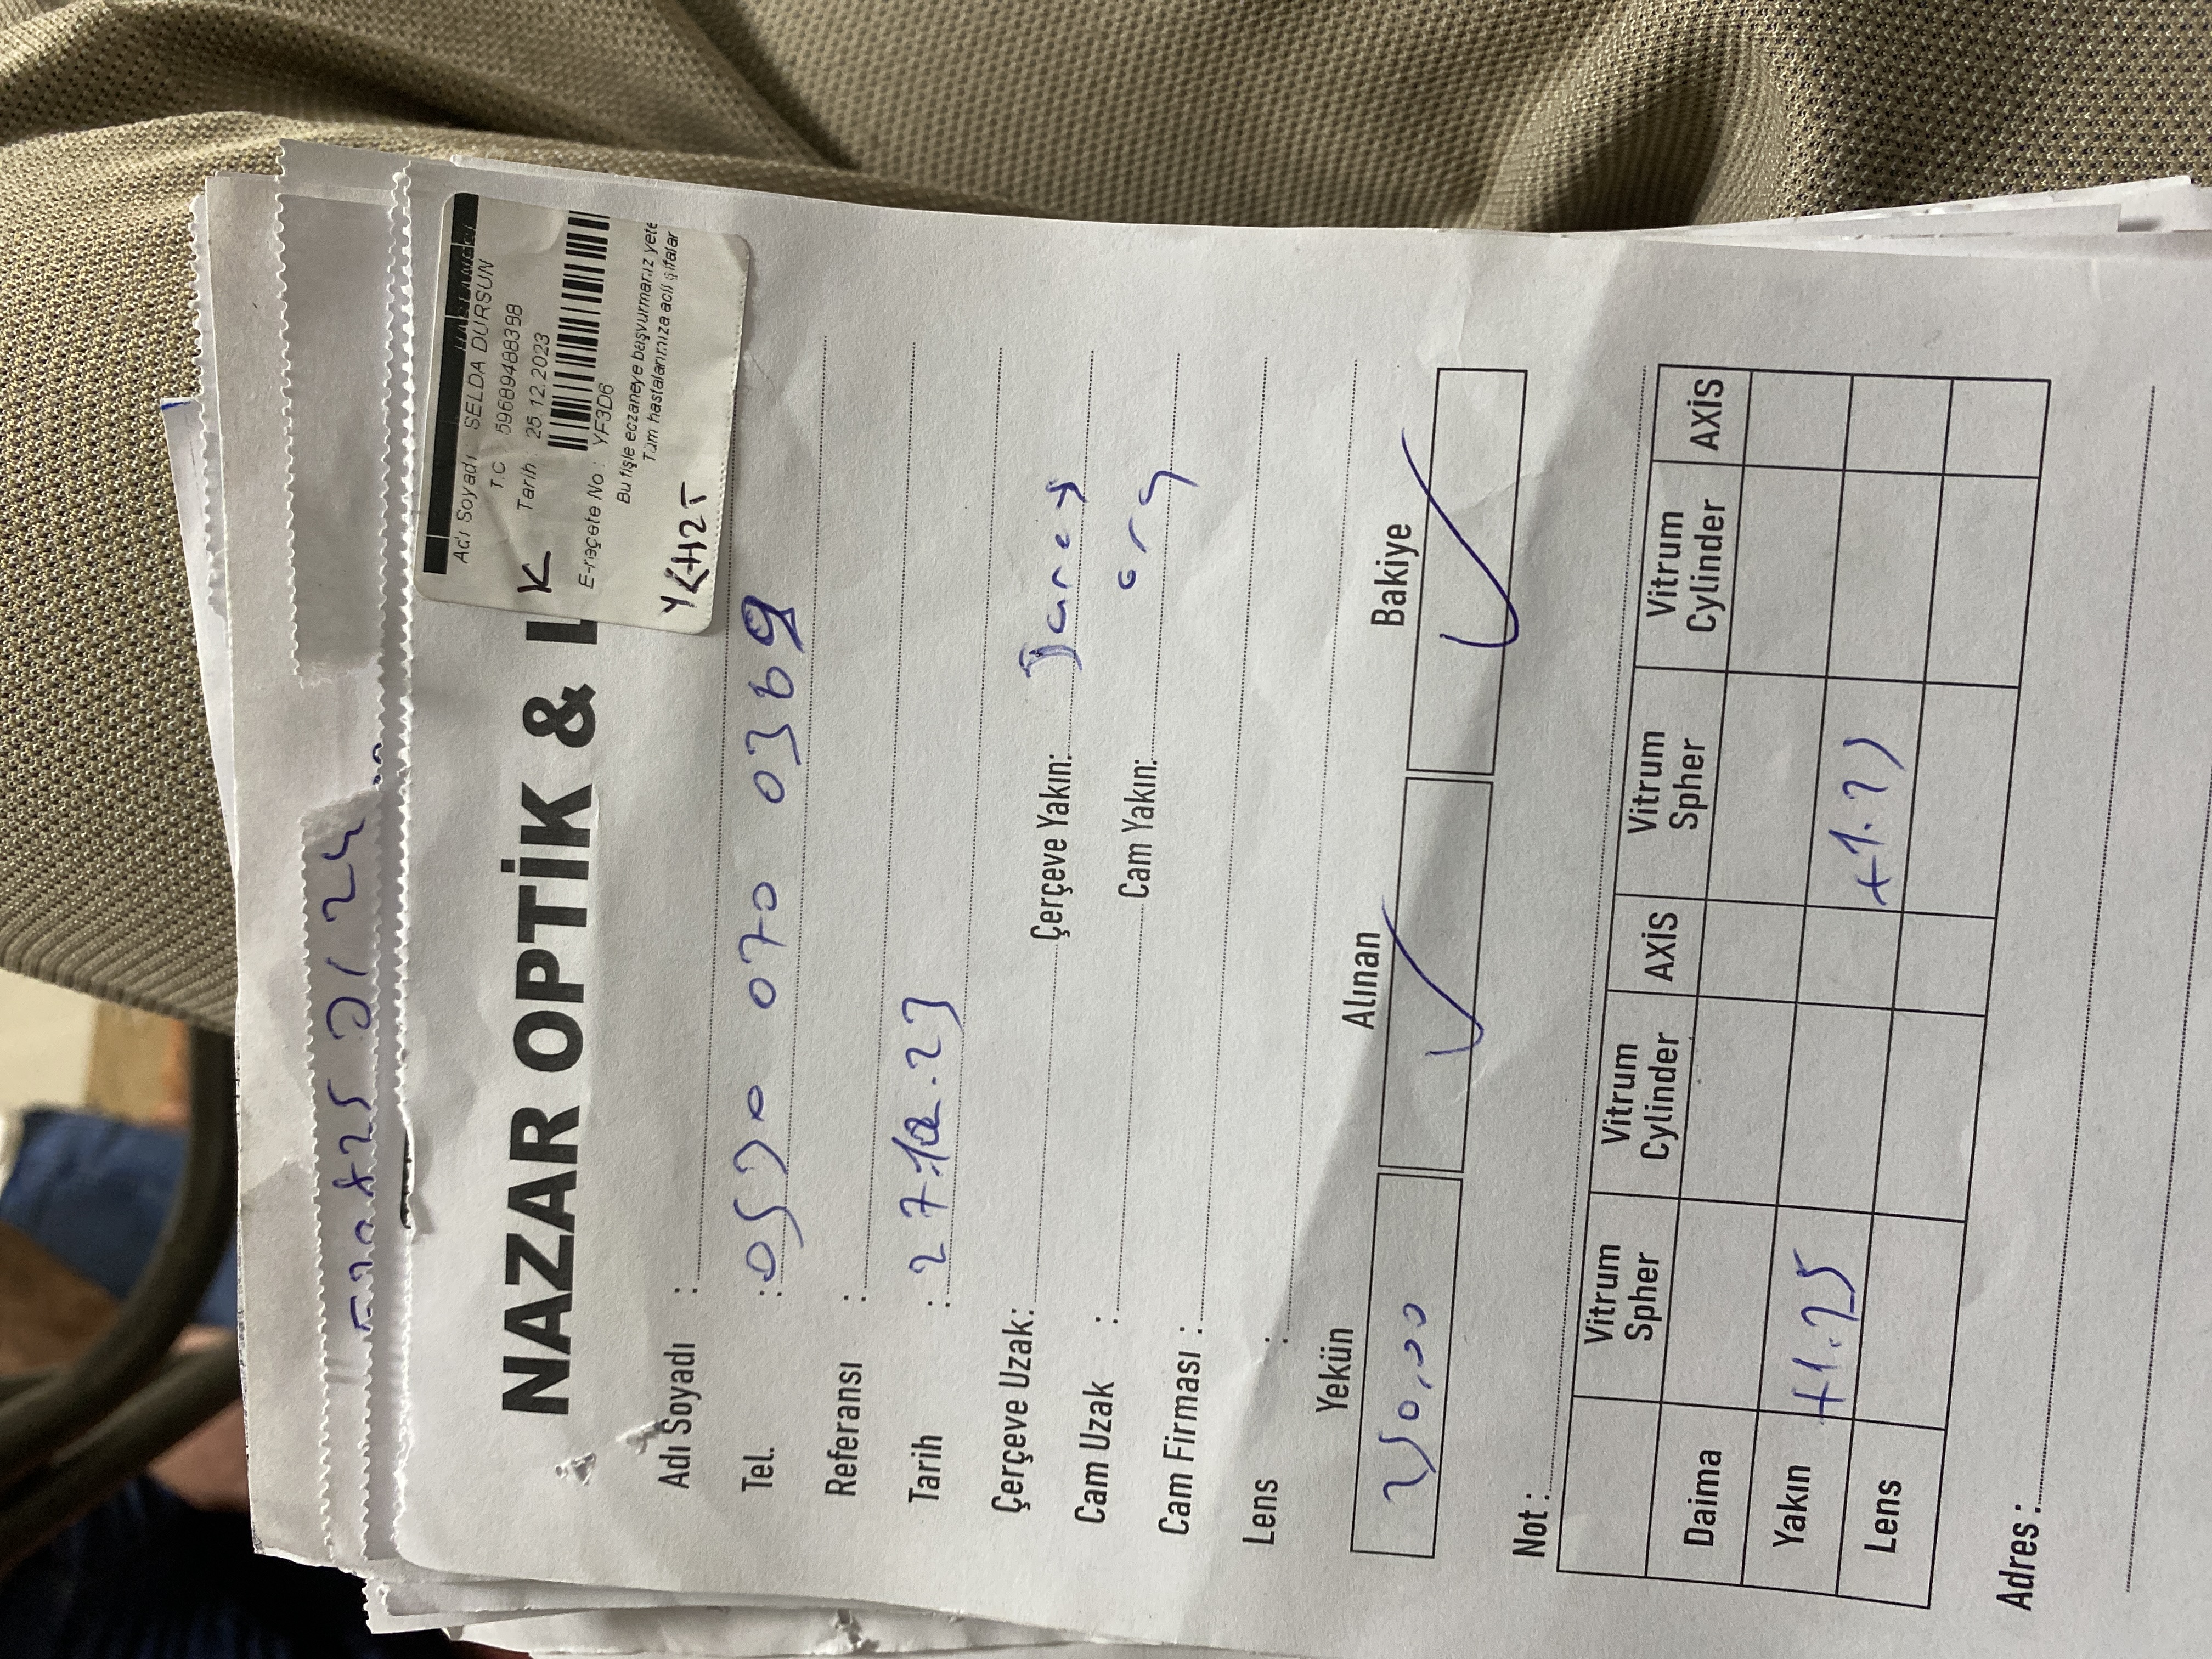 NAZAR OPTİK & L
Adı Soyadı : SELDA DURSUN
T.C 59689488398
Tarih : 25.12.2023
K
E-reçete No : YF3D6
Bu fişle eczaneye başvurmanız yete
Tüm hastalarımıza acil şifalar
Adı Soyadı :
Tel. : 0530 070 0369
Referansı :
Tarih : 27.12.23
Çerçeve Uzak: Çerçeve Yakın:
Cam Uzak : Cam Yakın: org
Cam Firması :
Lens :
Yekün Alınan Bakiye
250,00 ✓ ✓
Not :
Vitrum Spher Vitrum Cylinder AXİS Vitrum Spher Vitrum Cylinder AXİS
Daima
Yakın +1.25 +1.25
Lens
Adres :